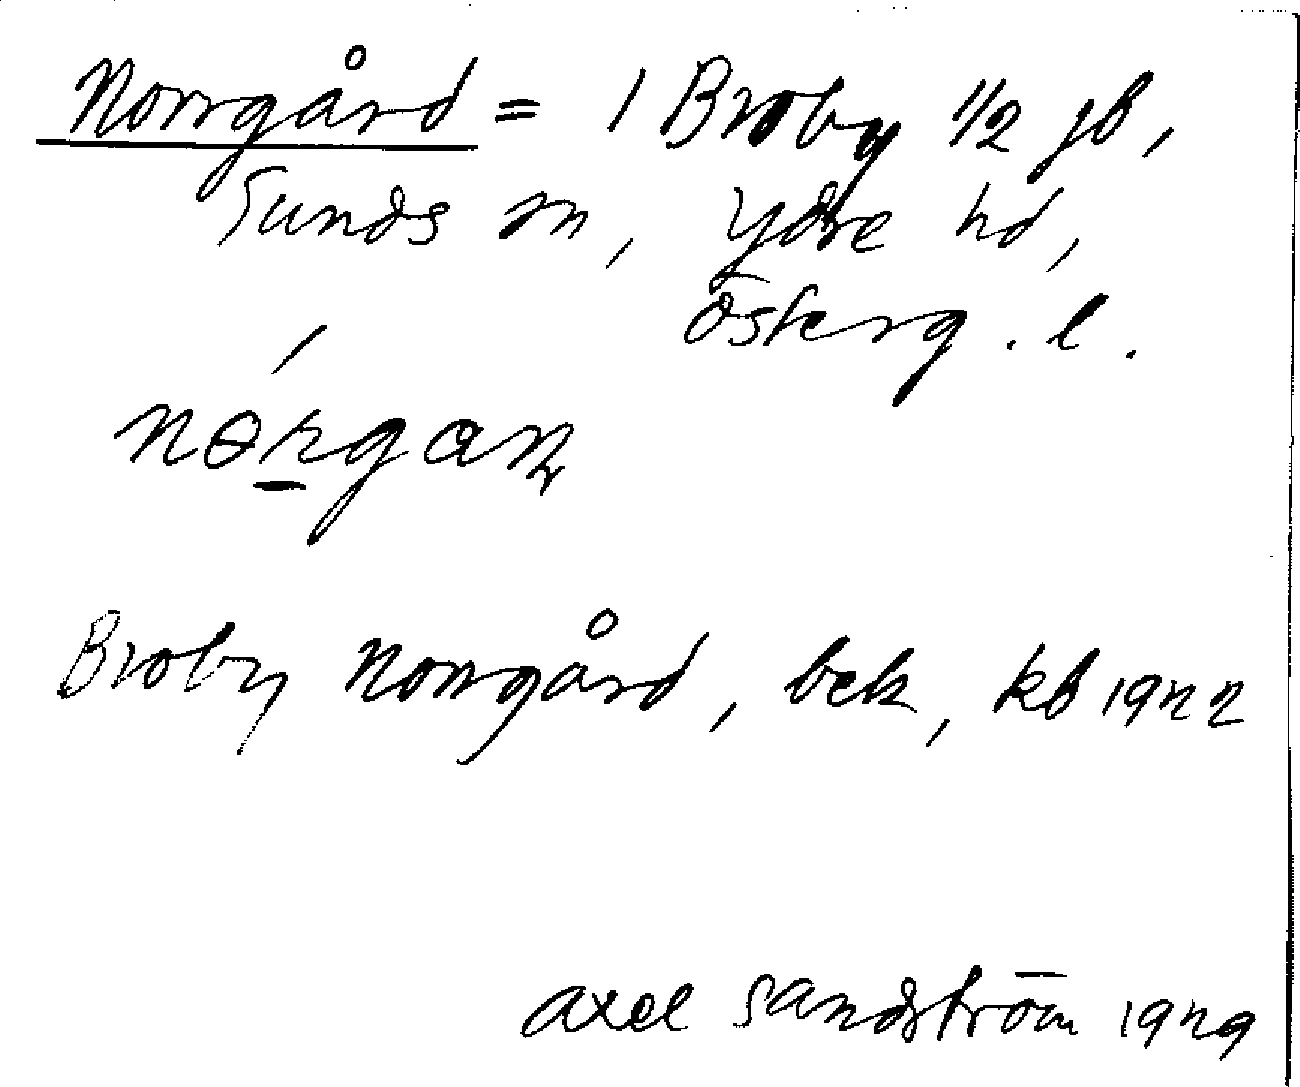 Norrgård = 1 Broby 1/2 jb,
Sunds sn, Ydre hd,
Österg. l.
nɵ́rgaɳ
Broby Norrgård, bek, kb 1922
Axel Sandström 1929